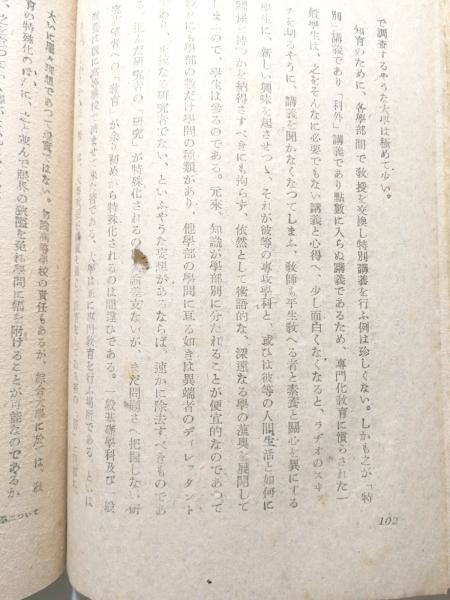 で調査するやうな大學は極めて少い。
知育のために、各學部間で教授を交換し特別講義を行ふ例は珍しくない。しかも之が「特
別」講義であり「科外」講義であり點數に入らぬ講義であるため、專門化教育に慣らされた一
般學生は、之をそんなに必要でもない講義と心得へ、少し面白くなくなると、ラヂオのスヰ
チを切るやうに、講義を聞かなくなつてしまふ。教師も平生教へる者と素養と關心を異にする
學生に、新しい興味を起させつゝ、それが彼等の專攻學科と、或ひは彼等の人間生活と如何に
關係を持つかを納得さすべきにも拘らず、依然として術語的な、深遠なる學の薀奧を展開して
しまふので、學生は去るのである。元來、知識が學部別に分たれることが便宜的なのであつて
にも學部の數だけ學問の種類があり、他學部の學問に亙る如きは異端者のディレッタント
であり、正統な研究者でない、といふやうな妄想があるならば、速かに除去すべきものであ
研究者の「研究」が特殊化されるの 論差支ないが、まだ問題さへ把握しない研
究志望者への「教育」が余り初めから特殊化されるのは間違ひである。一般基礎學科及び一般
高等學校で濟ませて來た筈である、大學は正に專門教育を行ふ場所である、といは
大いに屬々理想であつて現實ではない。勿論高等學校の責任もあるが、綜合大學に於ては、教
育の特殊化のほいに、之と並んで眼界の狹隘を免れ學問に幅を附けることが可能なのであるか
について
102